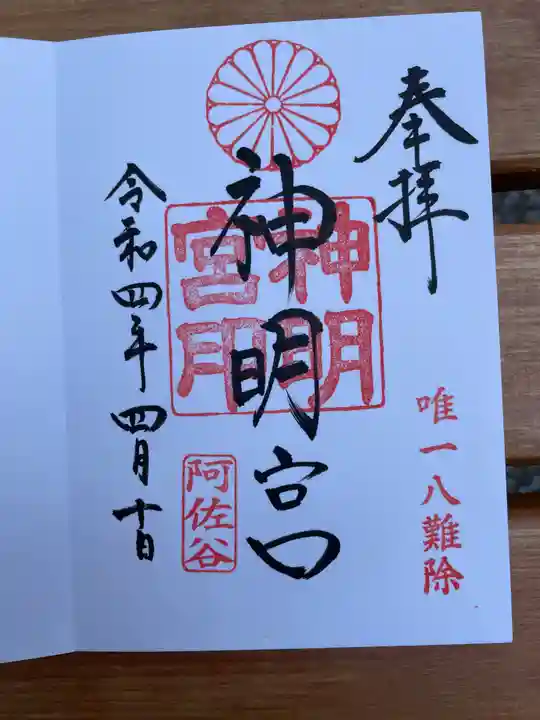 奉拝
唯一八難除
神明宮
神明
宮印
阿佐谷
令和四年四月十日